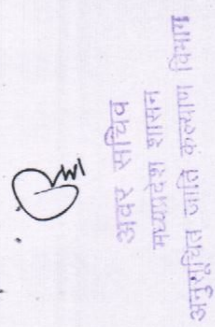 अवर सचिव
मध्यप्रदेश शासन
अनुसूचित जाति कल्याण विभाग